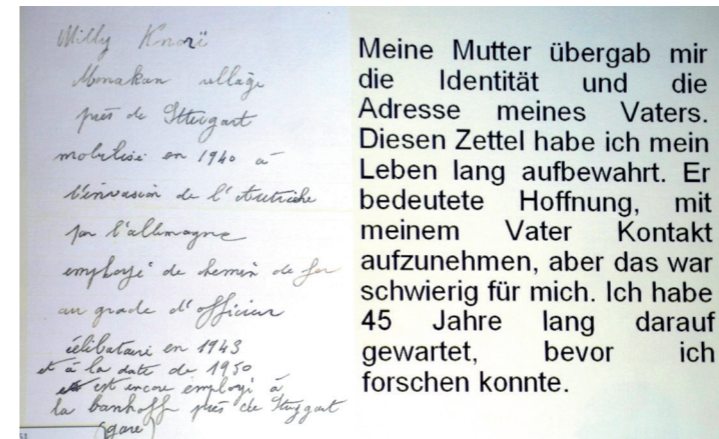 Willy Knorï
Monakan village
près de Stteugart
mobilisé en 1940 à
l'invasion de l'Autriche
par l'allemagne
employé de chemin de fer
au grade d'officier
célibataire en 1943
et à la date de 1950
est encore employé à
la banhoff près de Stuggart
(gare)
Meine Mutter übergab mir
die Identität und die
Adresse meines Vaters.
Diesen Zettel habe ich mein
Leben lang aufbewahrt. Er
bedeutete Hoffnung, mit
meinem Vater Kontakt
aufzunehmen, aber das war
schwierig für mich. Ich habe
45 Jahre lang darauf
gewartet, bevor ich
forschen konnte.